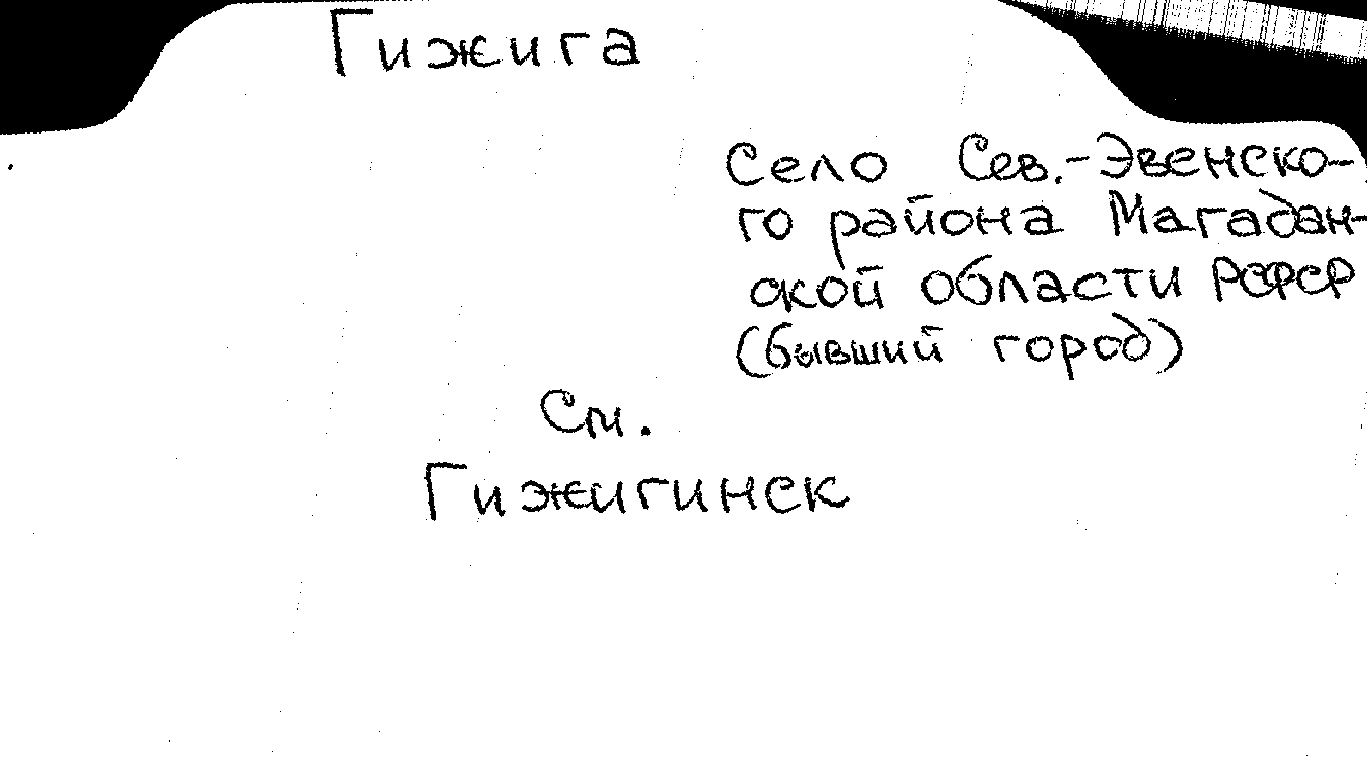 Гижига
Село Сев.-Эвенско-
го района Магадан-
ской области РСФСР
(бывший город)
См.
Гижигинск